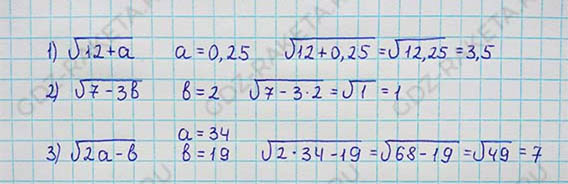 1) √12+a a = 0,25 √12+0,25 = √12,25 = 3,5
2) √7-3в в = 2 √7-3·2 = √1 = 1
a = 34
3) √2a-в в = 19 √2·34-19 = √68-19 = √49 = 7
GDZ-RAKETA.RU